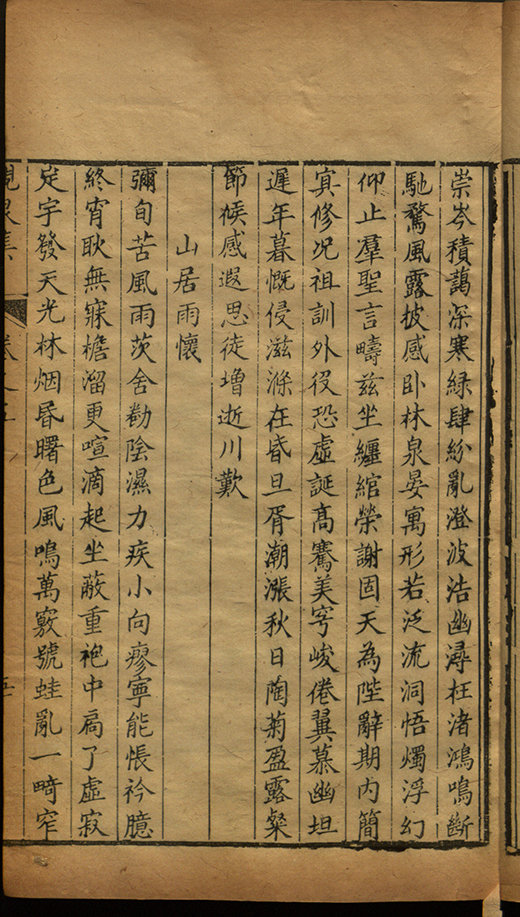 崇岑積藹深寒綠肆紛亂澄波浩幽潯枉渚鴻鳴斷
馳騖風露披感卧林泉晏寓形若泛流洞悟燭浮幻
仰止羣聖言疇茲坐纏綰榮謝固天為陛辭期内簡
寘修况祖訓外役恐虛誕高騫美穹峻倦翼慕幽坦
遲年暮慨侵滋滌在昏旦胥潮漲秋日陶菊盈露粲
節候感遐思徒增逝川歎
山居雨懷
彌旬苦風雨茨舍勸陰濕力疾小向瘳寧能悵衿臆
終宵耿無寐檐溜更喧滴起坐蔽重袍中扃了虛寂
定宇發天光林烟昏曙色風鳴萬竅號蛙亂一畸窄